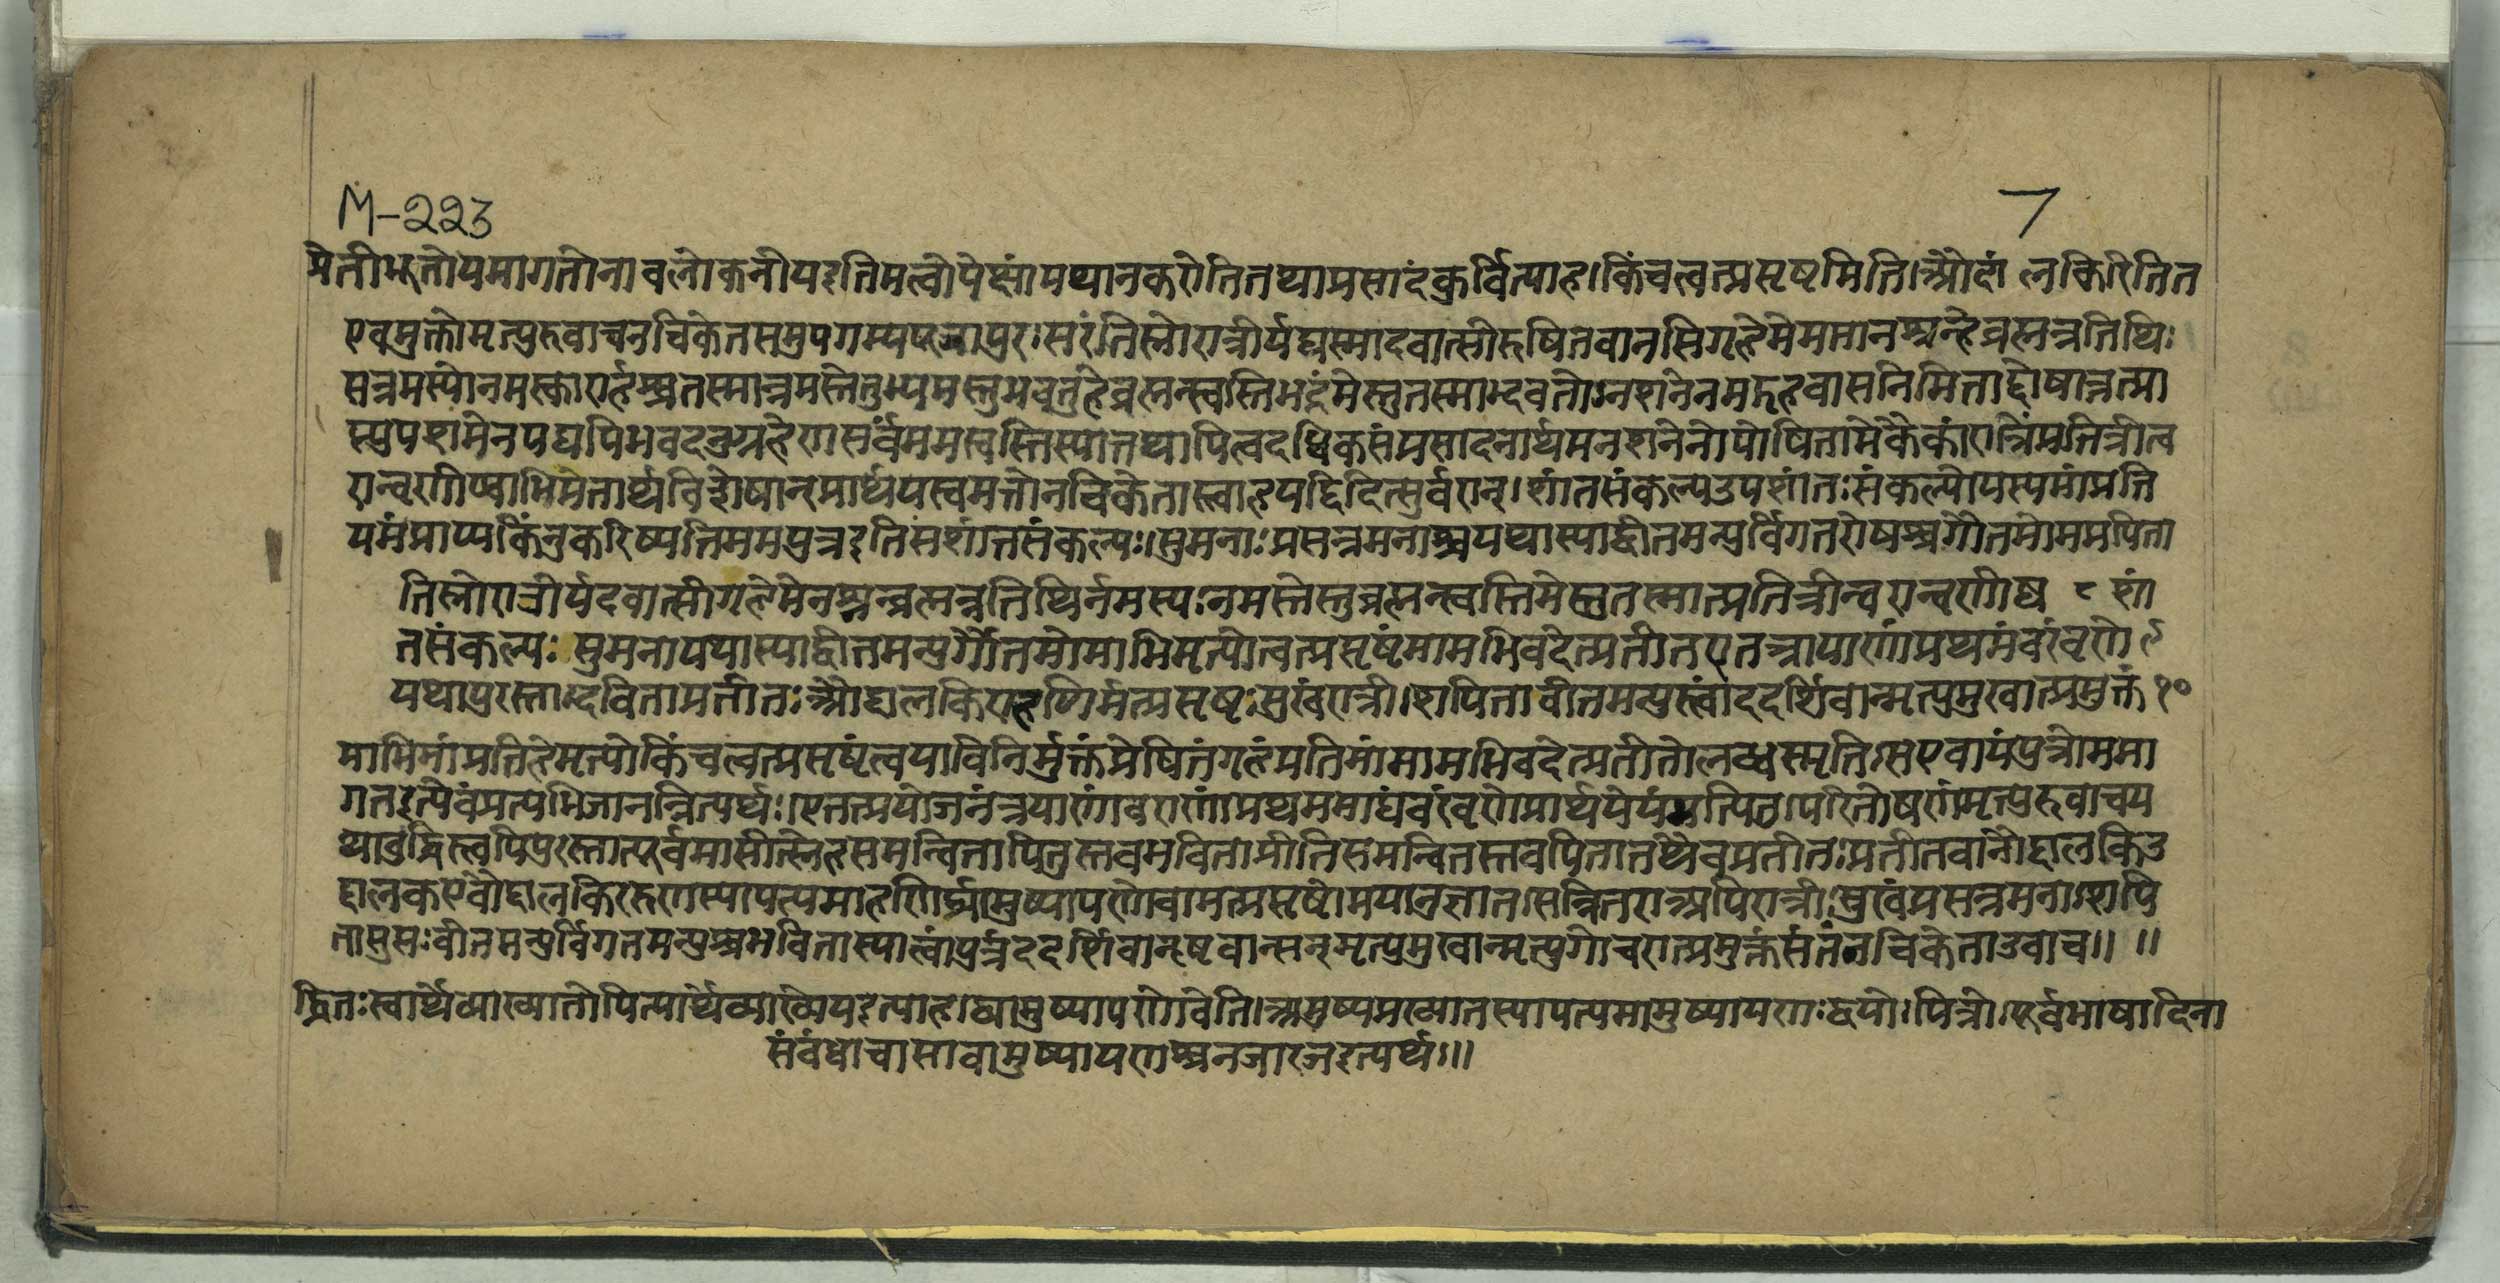 M-223
7
प्रेतीभूतोयमागतोनावलोकनीयइतिमत्वोपेक्षांयथानकरोतितथाप्रसादंकुर्वित्याह।किंचत्वत्प्रसृष्टमिति।औदालकिरितित
एवमुक्तोमृत्युरुवाचनचिकेतसमुपगम्यपूजापुरःसरंतिस्रोरात्रीर्यद्यस्मादवात्सीरुषितवानसिगृहेमेममानश्नन्हेब्रह्मन्नतिथिः
सन्नमस्योनमस्कारार्हश्चतस्मान्नमस्तेतुभ्यमस्तुभवतुहेब्रह्मन्स्वस्तिभद्रंमेस्तुतस्माद्भवतोऽनशनेनमद्गृहवासनिमित्ताद्दोषात्तत्प्रा
प्त्युपशमेनयद्यपिभवदनुग्रहेणसर्वंममस्वस्तिस्यात्तथापित्वदधिकसंप्रसादनार्थमनशनेनोपोषितामेकैकांरात्रिंप्रतित्रीन्व
रान्वृणीष्वाभिप्रेतार्थविशेषान्प्रार्थयस्वमत्तोनचिकेतास्त्वाहयदिदित्सुर्वरान्।शांतसंकल्पउपशांतःसंकल्पोयस्यमांप्रति
यमंप्राप्यकिंनुकरिष्यतिममपुत्रइतिसशांतसंकल्पः।सुमनाःप्रसन्नमनाश्चयथास्याद्वीतमन्युर्विगतरोषश्चगौतमोममपिता
तिस्रोरात्रीर्यदवात्सीगृहेमेनश्नन्ब्रह्मन्नतिथिर्नमस्यःनमस्तेस्तुब्रह्मन्स्वस्तिमेस्तुतस्मात्प्रतित्रीन्वरान्वृणीष्व ९ शां
तसंकल्पः सुमनायथास्याद्वीतमन्युर्गौतमोमाभिमृत्योत्वत्प्रसृष्टंमामभिवदेत्प्रतीतएतत्रयाणांप्रथमंवरंवृणे
यथापुरस्ताद्भविताप्रतीतःऔद्दालकिरारुणिर्मत्प्रसृष्टःसुखंरात्रीःशयितावीतमन्युस्त्वांददृशिवान्मृत्युमुखात्प्रमुक्तं १०
माभिमांप्रतिहेमृत्योकिंचत्वत्प्रसृष्टंत्वयाविनिर्मुक्तंप्रेषितंगृहंप्रतिमांमामभिवदेत्प्रतीतोलब्धस्मृतिःसएवायंपुत्रोममा
गतइत्येवंप्रत्यभिजानन्नित्यर्थः।एतत्प्रयोजनंत्रयाणांवराणांप्रथममाद्यंवरंवृणेप्रार्थयेयंमत्पितुःपरितोषणंमृत्युरुवाचय
थाबुद्धिस्त्वयिपुरस्तात्पूर्वमासीत्स्नेहसमन्वितापितुस्तवभविताप्रीतिसमन्वितस्तवपितातथैवप्रतीतःप्रतीतवानौद्दालकिउ
द्दालकएवौद्दालकिररुणस्यापत्यमारुणिर्द्व्यामुष्यायणोवामत्प्रसृष्टोमयानुज्ञातःसन्नितराअपिरात्रीःसुखंप्रसन्नमनाःशयि
तासुप्तःवीतमन्युर्विगतमन्युश्चभवितास्यात्त्वांपुत्रंददृशिवान्दृष्टवान्सन्मृत्युमुखान्मृत्युगोचरात्प्रमुक्तंसंतंनचिकेताउवाच॥ ॥
द्धितःस्वार्थेव्याख्यातोपित्यार्थेव्याख्येयइत्याह।द्व्यामुष्यायणोवेति।अमुष्यप्रख्यातस्यापत्यमामुष्यायणःद्वयोःपित्रोःपूर्वभाषादिना
संबंधीचासावामुष्यायणश्चनजारजइत्यर्थः॥